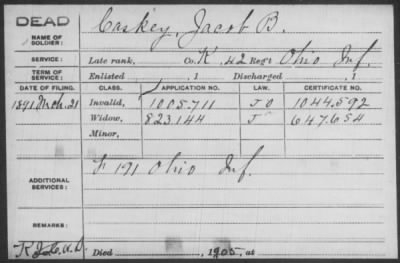 DEAD
NAME OF SOLDIER: Caskey, Jacob B.
SERVICE: Late rank, Co. K, 42 Reg't Ohio Inf.
TERM OF SERVICE: Enlisted , 1 Discharged , 1
DATE OF FILING. CLASS. APPLICATION NO. LAW. CERTIFICATE NO.
1891, Mch. 21 Invalid, 1005.711 1044.592
Widow, 823144 647.654
Minor,
ADDITIONAL SERVICES: F 191 Ohio Inf
REMARKS:
Died , 1905, at